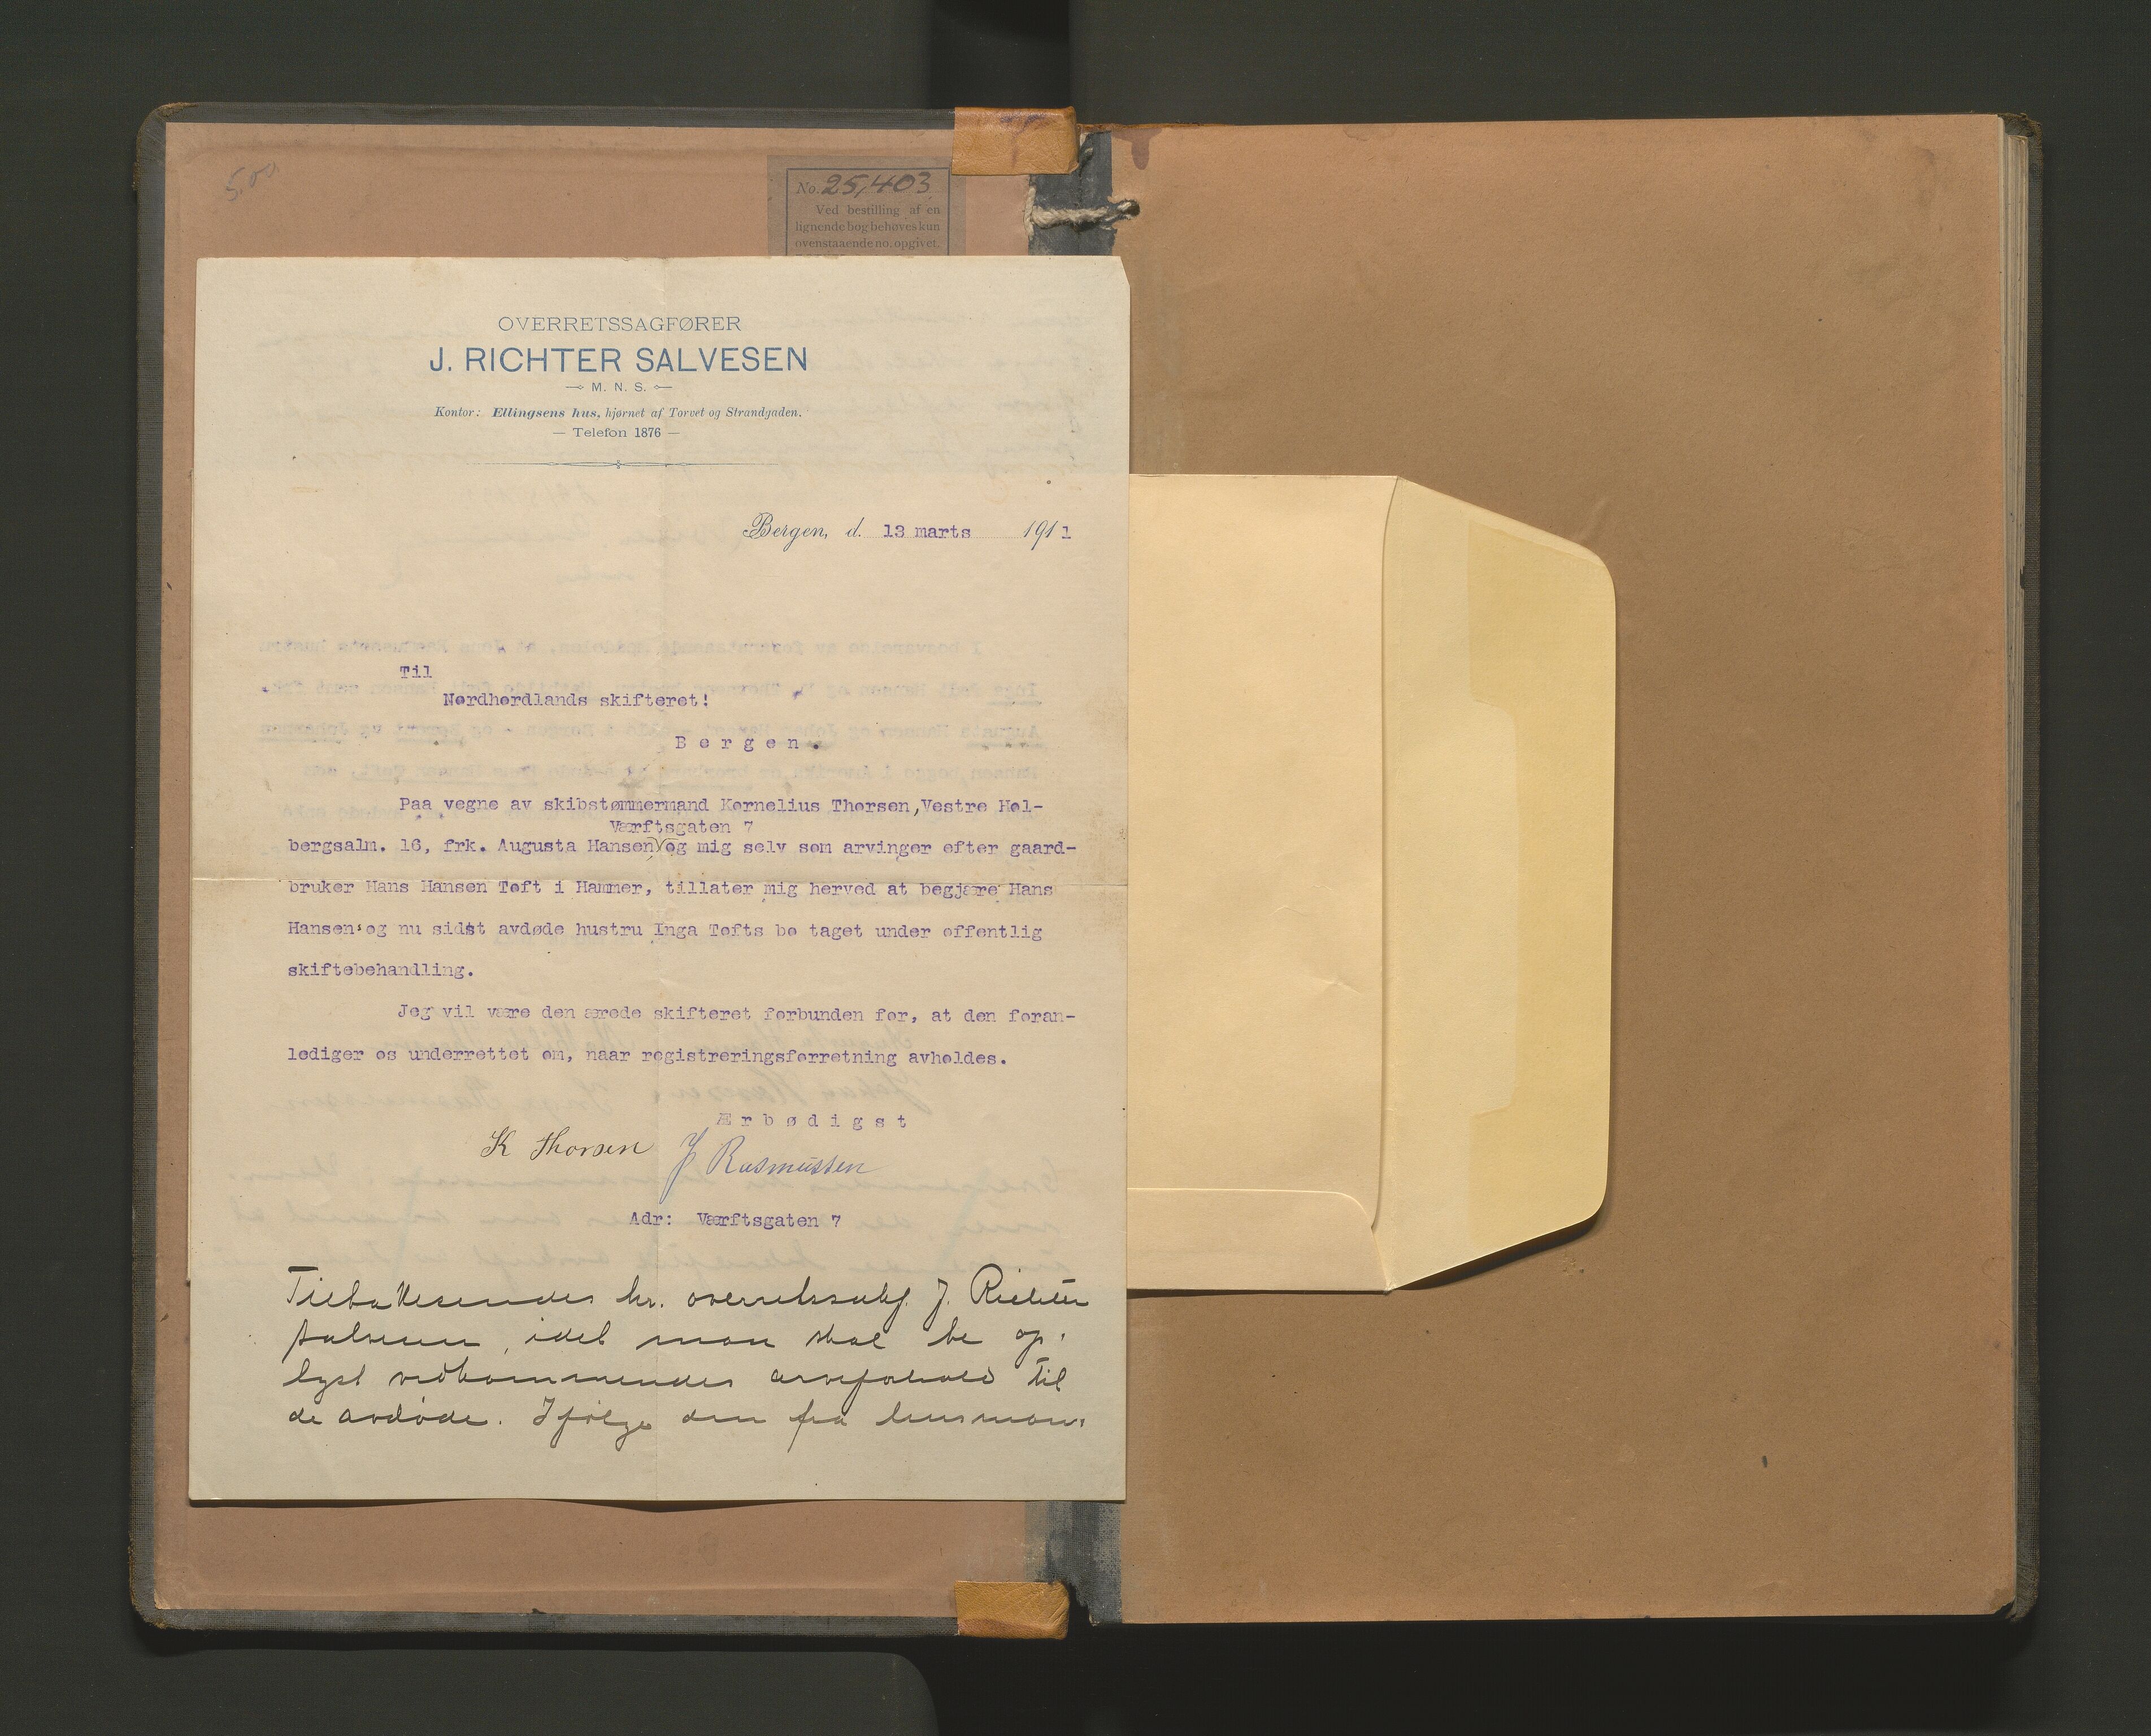 5.00.
No. 25,403
Ved bestilling af en
lignende bog behøves kun
ovenstaaende no. opgivet.
OVERRETSSAGFØRER
J. RICHTER SALVESEN
M. N. S.
Kontor: Ellingsens hus, hjørnet af Torvet og Strandgaden.
— Telefon 1876 —
Bergen, d. 13 marts 1911
Til
Nordhordlands skifteret!
Bergen.
Paa vegne av skibstømmermand Kornelius Thorsen, Vestre Hol-
Værftsgaten 7
bergsalm. 16, frk. Augusta Hansen og mig selv som arvinger efter gaard-
bruker Hans Hansen Toft i Hammer, tillater mig herved at begjære Hans
Hansen og nu sidst avdøde hustru Inga Tofts bo taget under offentlig
skiftebehandling.
Jeg vil være den ærede skifteret forbunden for, at den foran-
lediger os underrettet om, naar registreringsforretning avholdes.
Ærbødigst
K Thorsen J Rasmussen
Adr: Værftsgaten 7
Tilbakesendes hr. overretssakf. J. Richter
Salvesen, idet man skal be op-
lyst vedkommendes arveforhold til
de avdøde. Ifølge den fra lensman-